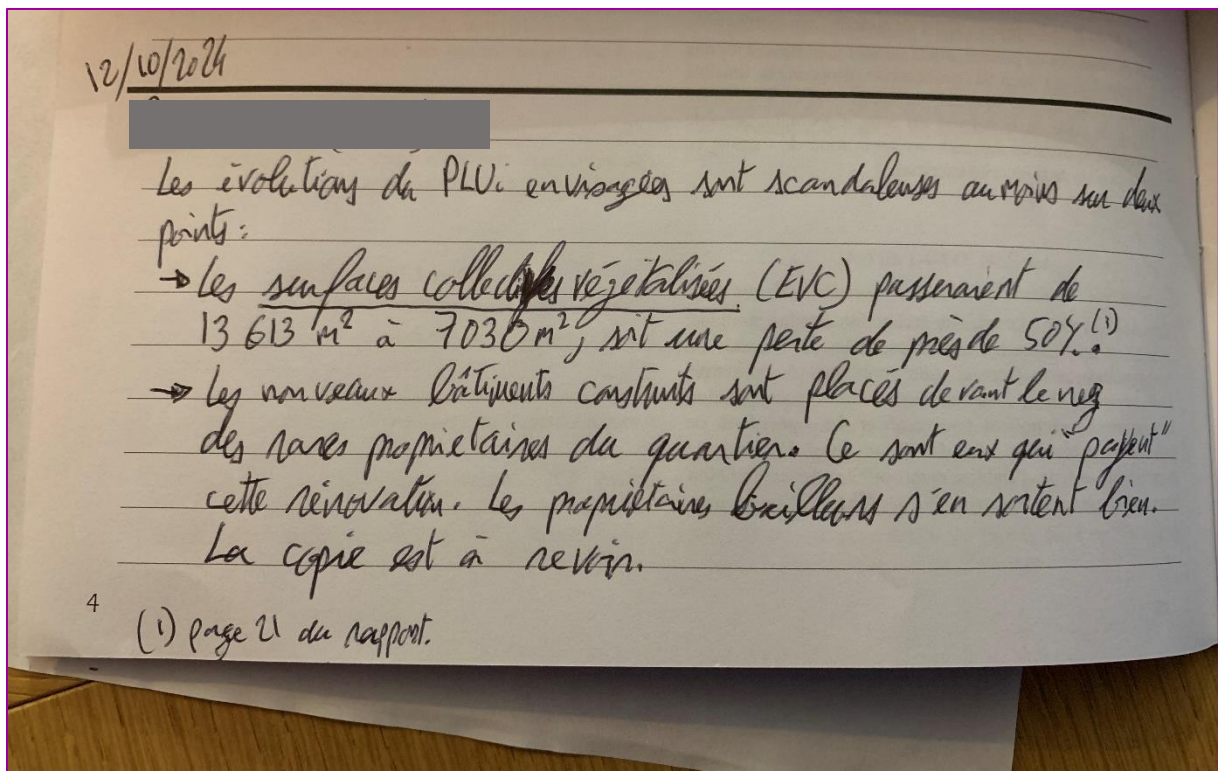 12/10/2024
Les évolutions du PLUi envisagées sont scandaleuses au moins sur deux
points :
→ Les surfaces collectives végétalisées (EVC) passeraient de
13 613 m² à 7030 m², soit une perte de près de 50%.(1)
→ Les nouveaux bâtiments construits sont placés devant le nez
des rares propriétaires du quartier. Ce sont eux qui "payent"
cette rénovation. Les propriétaires bailleurs s'en sortent bien.
La copie est à revoir.
4
(1) page 21 du rapport.